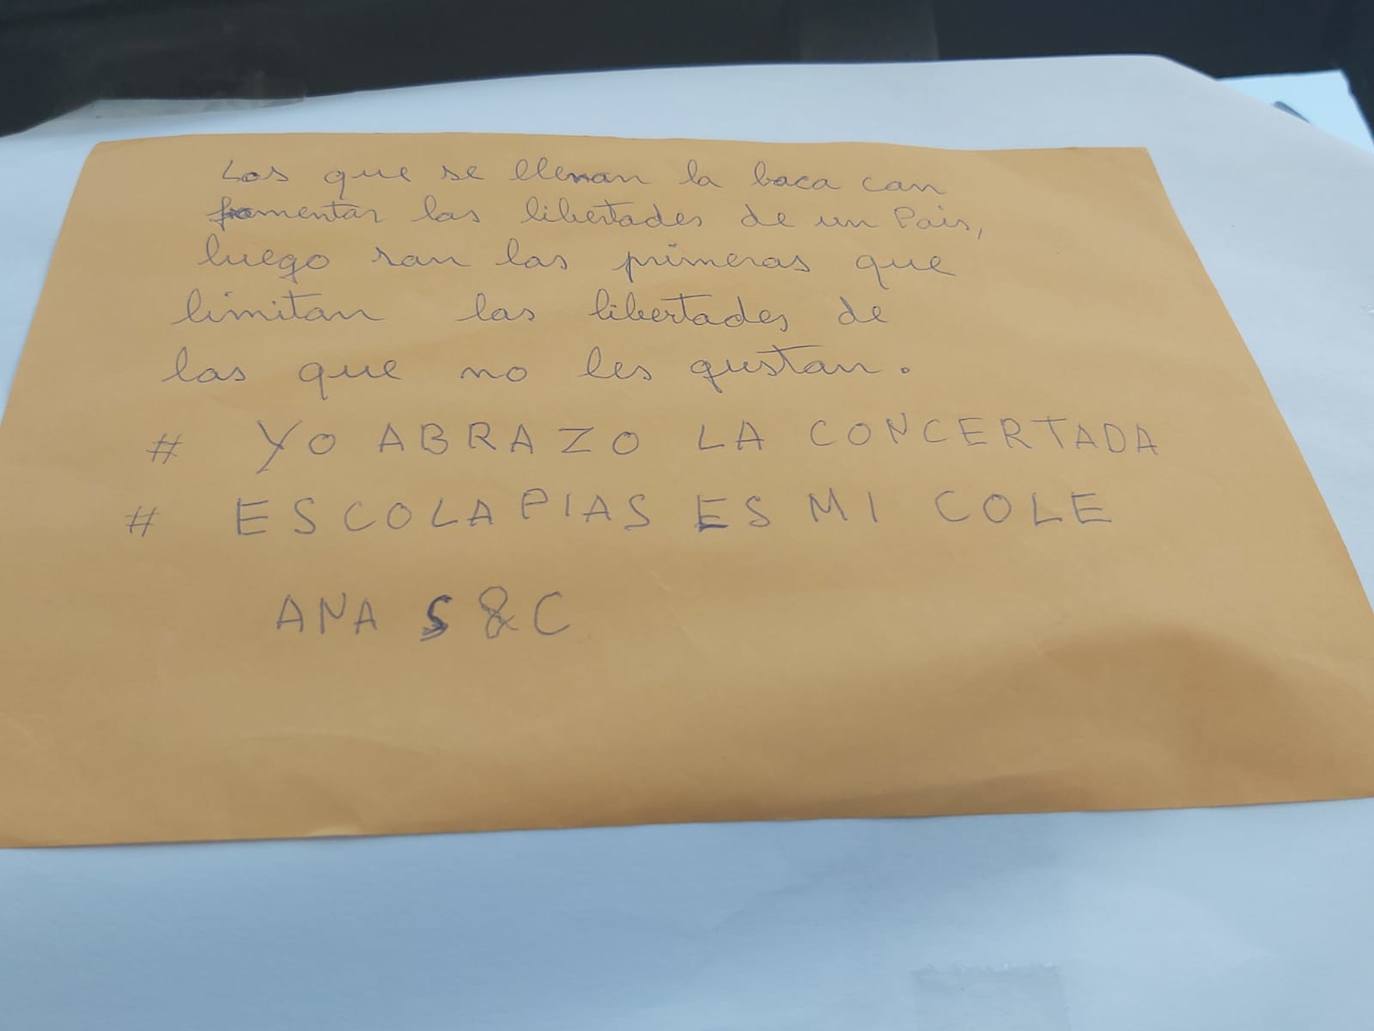 Los que se llenan la boca con
fomentar las libertades de un Pais,
luego son los primeros que
limitan las libertades de
los que no les gustan.
# YO ABRAZO LA CONCERTADA
# ESCOLAPIAS ES MI COLE
ANA S & C